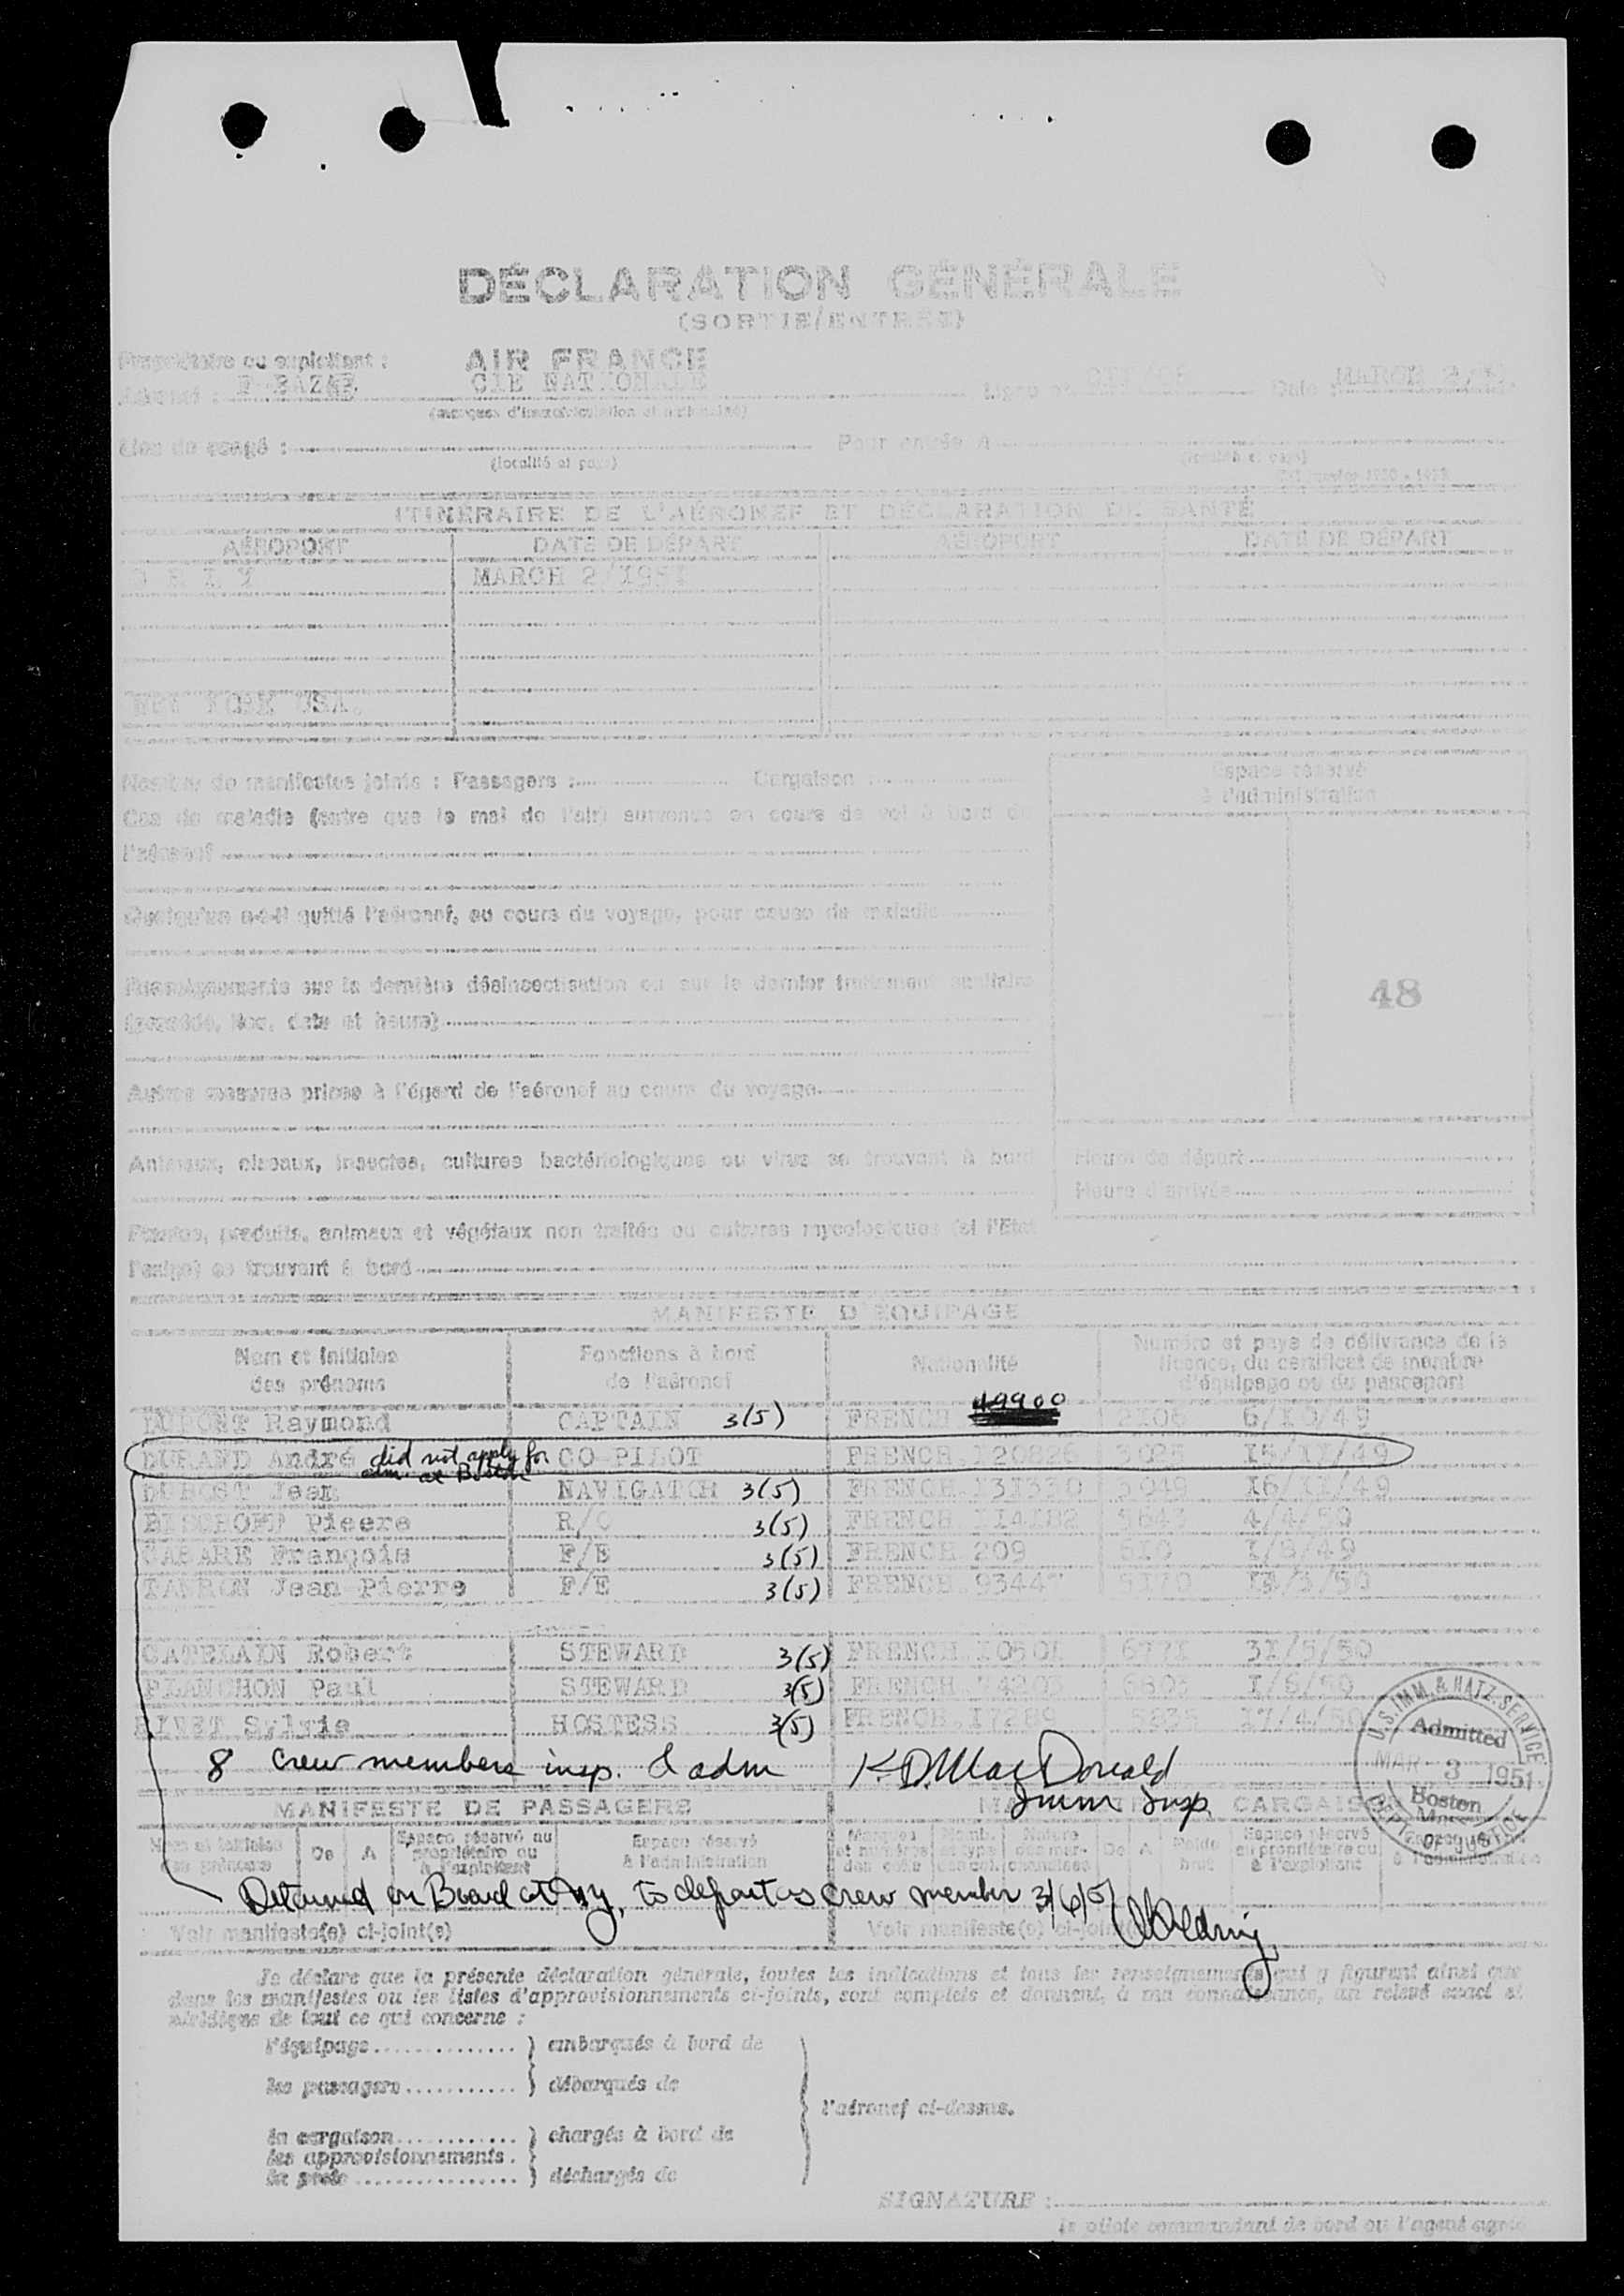 DÉCLARATION GÉNÉRALE
(SORTIE/ENTRÉE)
Propriétaire ou exploitant : AIR FRANCE
F-BAZ CIE NATIONALE Date MARCH 2/
(marques d'immatriculation et nationalité)
Pour entrée à
(localité et pays) (localité et pays)
ITINÉRAIRE DE L'AÉRONEF ET DÉCLARATION DE SANTÉ
AÉROPORT DATE DE DÉPART AÉROPORT DATE DE DÉPART
ORLY MARCH 2/1951
NEW YORK USA.
Nombre de manifestes joints : Passagers : Cargaison :
Espace réservé
à l'administration
Cas de maladie (autre que le mal de l'air) survenus en cours de vol à bord de
l'aéronef
Quelqu'un a-t-il quitté l'aéronef, au cours du voyage, pour cause de maladie
Renseignements sur la dernière désinsectisation ou sur le dernier traitement sanitaire
(procédé, lieu, date et heure)
48
Autres mesures prises à l'égard de l'aéronef au cours du voyage
Animaux, oiseaux, insectes, cultures bactériologiques ou virus se trouvant à bord
Heure de départ
Heure d'arrivée
Plantes, produits, animaux et végétaux non traités ou cultures mycologiques (si l'État
l'exige) se trouvant à bord
MANIFESTE D'ÉQUIPAGE
Nom et initiales des prénoms
Fonctions à bord de l'aéronef
Nationalité
Numéro et pays de délivrance de la licence, du certificat de membre d'équipage ou du passeport
DUPONT Raymond CAPTAIN 3(5) FRENCH 49900 2106 6/10/49
DURAND André did not apply for CO-PILOT FRENCH 120826 3025 15/11/49
adm. at Boston
DUBOST Jean NAVIGATOR 3(5) FRENCH 131330 3049 16/11/49
BISCHOFF Pierre R/O 3(5) FRENCH 114182 5643 4/4/50
CABARE François F/E 3(5) FRENCH 209 610 1/8/49
TAMRON Jean Pierre F/E 3(5) FRENCH 93447 5170 /3/50
CATELAIN Robert STEWARD 3(5) FRENCH 10501 6771 31/5/50
PLANCHON Paul STEWARD 3(5) FRENCH 1/6/50
BINET Sylvie HOSTESS 3(5) FRENCH 5835 17/4/50
8 crew members insp. & adm K.D. MacDonald
Imm Insp
U.S. IMM. & NATZ. SERVICE
Admitted
MAR 3 1951
Boston
Mass.
DEPT. OF JUSTICE
MANIFESTE DE PASSAGERS
Nom et initiales des prénoms De A Espace réservé au propriétaire ou à l'exploitant Espace réservé à l'administration
Marques et numéros des colis Nature des marchandises De A Poids brut Espace réservé au propriétaire ou à l'exploitant
Detained on Board at NY, to depart as crew member 3/6/51
Voir manifeste(s) ci-joint(s) Voir manifeste(s) ci-joint(s)
Je déclare que la présente déclaration générale, toutes les indications et tous les renseignements qui y figurent ainsi que
dans les manifestes ou les listes d'approvisionnements ci-joints, sont complets et donnent, à ma connaissance, un relevé exact et
véridique de tout ce qui concerne :
l'équipage } embarqués à bord de
les passagers } débarqués de
l'aéronef ci-dessus.
la cargaison } chargés à bord de
les approvisionnements
déchargés de
SIGNATURE :
le pilote commandant de bord ou l'agent agréé